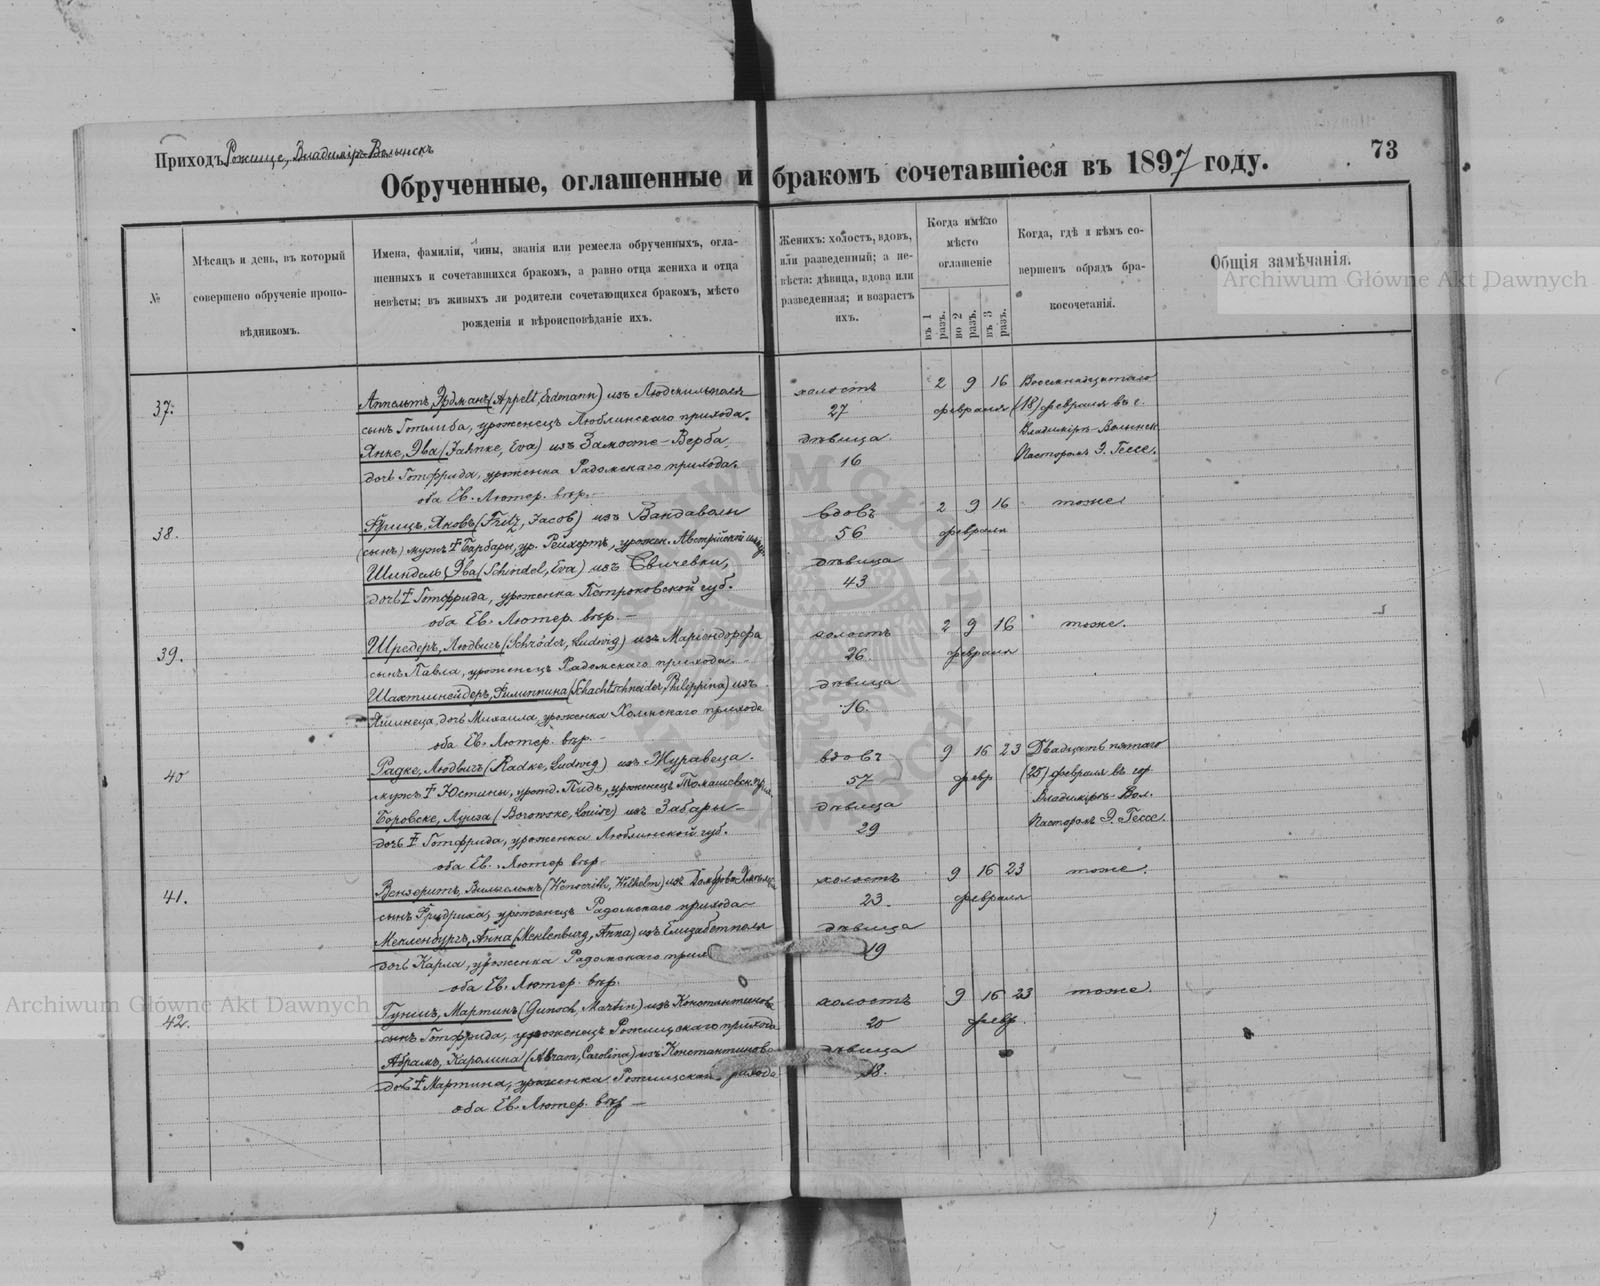 Приходъ Рожище, Владимiръ-Волынскъ
73
Обрученные, оглашенные и бракомъ сочетавшіеся въ 1897 году.
№
Мѣсяцъ и день, въ который
совершено обрученіе пропо-
вѣдникомъ.
Имена, фамиліи, чины, званія или ремесла обрученныхъ, огла-
шенныхъ и сочетавшихся бракомъ, а равно отца жениха и отца
невѣсты; въ живыхъ ли родители сочетающихся бракомъ, мѣсто
рожденія и вѣроисповѣданіе ихъ.
Женихъ: холостъ, вдовъ,
или разведенный; а не-
вѣста: дѣвица, вдова или
разведенная; и возрастъ
ихъ.
Когда имѣло
мѣсто
оглашеніе
въ 1 разъ.
во 2 разъ.
въ 3 разъ.
Когда, гдѣ и кѣмъ со-
вершенъ обрядъ бра-
косочетанія.
Общія замѣчанія.
Archiwum Główne Akt Dawnych
37.
Аппельтъ, Эрдманъ (Appelt, Erdmann) изъ Людвильполя
сынъ Готлиба, уроженецъ Люблинскаго прихода.
Янке, Эва (Jahnke, Eva) изъ Замосте-Верба
дочь Готфрида, уроженка Радомскаго прихода.
оба Ев. Лютер. вѣр.
холостъ
27
дѣвица
16
2 9 16
февраля
Восемнадцатаго
(18) февраля въ г.
Владимiръ-Волынск
Пасторомъ Э. Гессе.
38.
Фрицъ, Яковъ (Fritz, Jacob) изъ
(сынъ) мужъ ✝ Барбары, ур. Рейхертъ, урожен. Австрійской
Шиндель, Эва (Schindel, Eva) изъ Свичевки,
дочь ✝ Готфрида, уроженка Петроковской губ.
оба Ев. Лютер. вѣр. —
вдовъ
56
дѣвица
43
2 9 16
февраля
тоже
39.
Шредеръ, Людвигъ (Schröder, Ludwig) изъ Маріендорфа
сынъ Павла, уроженецъ Радомскаго прихода.
Шахтшнейдеръ, Филиппина (Schachtschneider, Philippina) изъ
дочь Михаила, уроженка Холмскаго прихода
оба Ев. Лютер. вѣр. —
холостъ
26.
дѣвица
16.
2 9 16
февраля
тоже.
40
Радке, Людвигъ (Radke, Ludwig) изъ Журавеца.
мужъ ✝ Юстины, урожд. уроженецъ
Боровске, Луиза (Borowske, Louise) изъ Забары
дочь ✝ Готфрида, уроженка Люблинской губ.
оба Ев. Лютер вѣр.
вдовъ
57
дѣвица
29
9 16 23
февр
Двадцать пятаго
(25) февраля въ гор.
Владимiръ-Вол.
Пасторомъ Э. Гессе.
41.
Вензеритъ, Вильгельмъ (Wenserith, Wilhelm) изъ
сынъ Фридриха, уроженецъ Радомскаго прихода
Мекленбургъ, Анна (Meklenburg, Anna) изъ Елизабетполя
дочь Карла, уроженка Радомскаго прих
оба Ев. Лютер. вѣр.
холостъ
23.
дѣвица
19
9 16 23
февраля
тоже.
Archiwum Główne Akt Dawnych
42.
Гуншъ, Мартинъ (Gunsch, Martin) изъ Константинова
сынъ Готфрида, уроженецъ Рожищскаго прихода
Абрамъ, Каролина (Abram, Carolina) изъ Константинова
дочь ✝ Мартина, уроженка Рожищскаго рихода
оба Ев. Лютер. вѣр —
холостъ
20
дѣвица
18.
9 16 23
февр.
тоже.